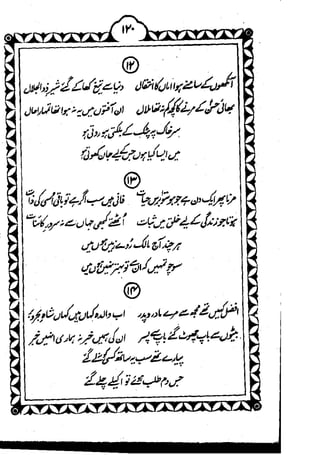 ۱۲۰
۱۲
آنکھوں کے سامنے ہوا اماں کا انتقال دنیا سے تیغ کھا کے گئے شیرِ ذوالجلال
بھائی حسنؑ کے مرنے کا کچھ کم نہ تھا ملال ان آفتوں میں یہ نہ ہوا تھا تمہارا حال
سر خاک پر پٹک کے بلکتی ہو روتی ہو
میں ایسا کیا ہوں جس کے لیے جان کھوتی ہو
۱۳
مرنا ہر ایک دن ہے جو ہو سو برس حیات فانی ہیں سب اگر ہے تو باقی اسی کی ذات
ہوتا جو زندگی کے لیے خلق میں ثبات اٹھتے کبھی جہاں سے نہ سرورِ کائنات
ہر چند آج مالک روئے زمیں ہوں میں
سوچو تمہیں کہ ان سے تو بہتر نہیں ہوں میں
۱۴
افضل کہیں تھے مجھ سے مرے مادر و پدر اب والدہ کہاں ہیں کہاں شاہِ بحر و بر
بیٹوں سے باپ چھوٹ گئے باپ سے پسر ان کی ہمیں خبر نہ ہماری انہیں خبر
پیارے تھے سب پہ ساتھ کسی کے نہ گئے
جس دم طلب ہوئے تو اکیلے چلے گئے